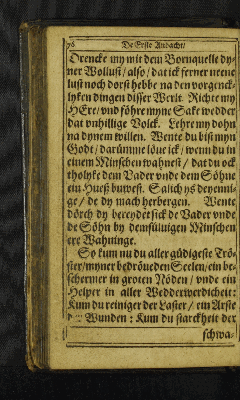 76 De Erste Andacht/
Drencke my mit dem Bornquelle dy-
ner Wollust/ also/ dat ick ferner nene
lust noch dorst hebbe na den vorgenck-
lyken dingen disser Werlt. Richte my
HEre/ vnd föhre myne Sake wedder
dat vnhillige Volck. Lehre my dohn
na dynem willen. Wente du bist myn
Godt/ darümme löue ick/ wenn du in
einem Minschen wahnest/ dat du ock
tholyke dem Vader vnde dem Söhne
ein Hueß buwest. Salich ys deyenni-
ge/ de dy mach herbergen. Wente
dörch dy bereydet sick de Vader vnde
de Söhn by demsüluigen Minschen
ere Wahninge.
So kum nu du aller güdigeste Trö-
ster/ myner bedröueden Seelen/ ein be-
schermer in groten Nöden/ vnde ein
Helper in aller Wedderwerdicheit:
Kum du reiniger der Laster/ ein Arste
der Wunden: Kum du starckheit der
schwa-